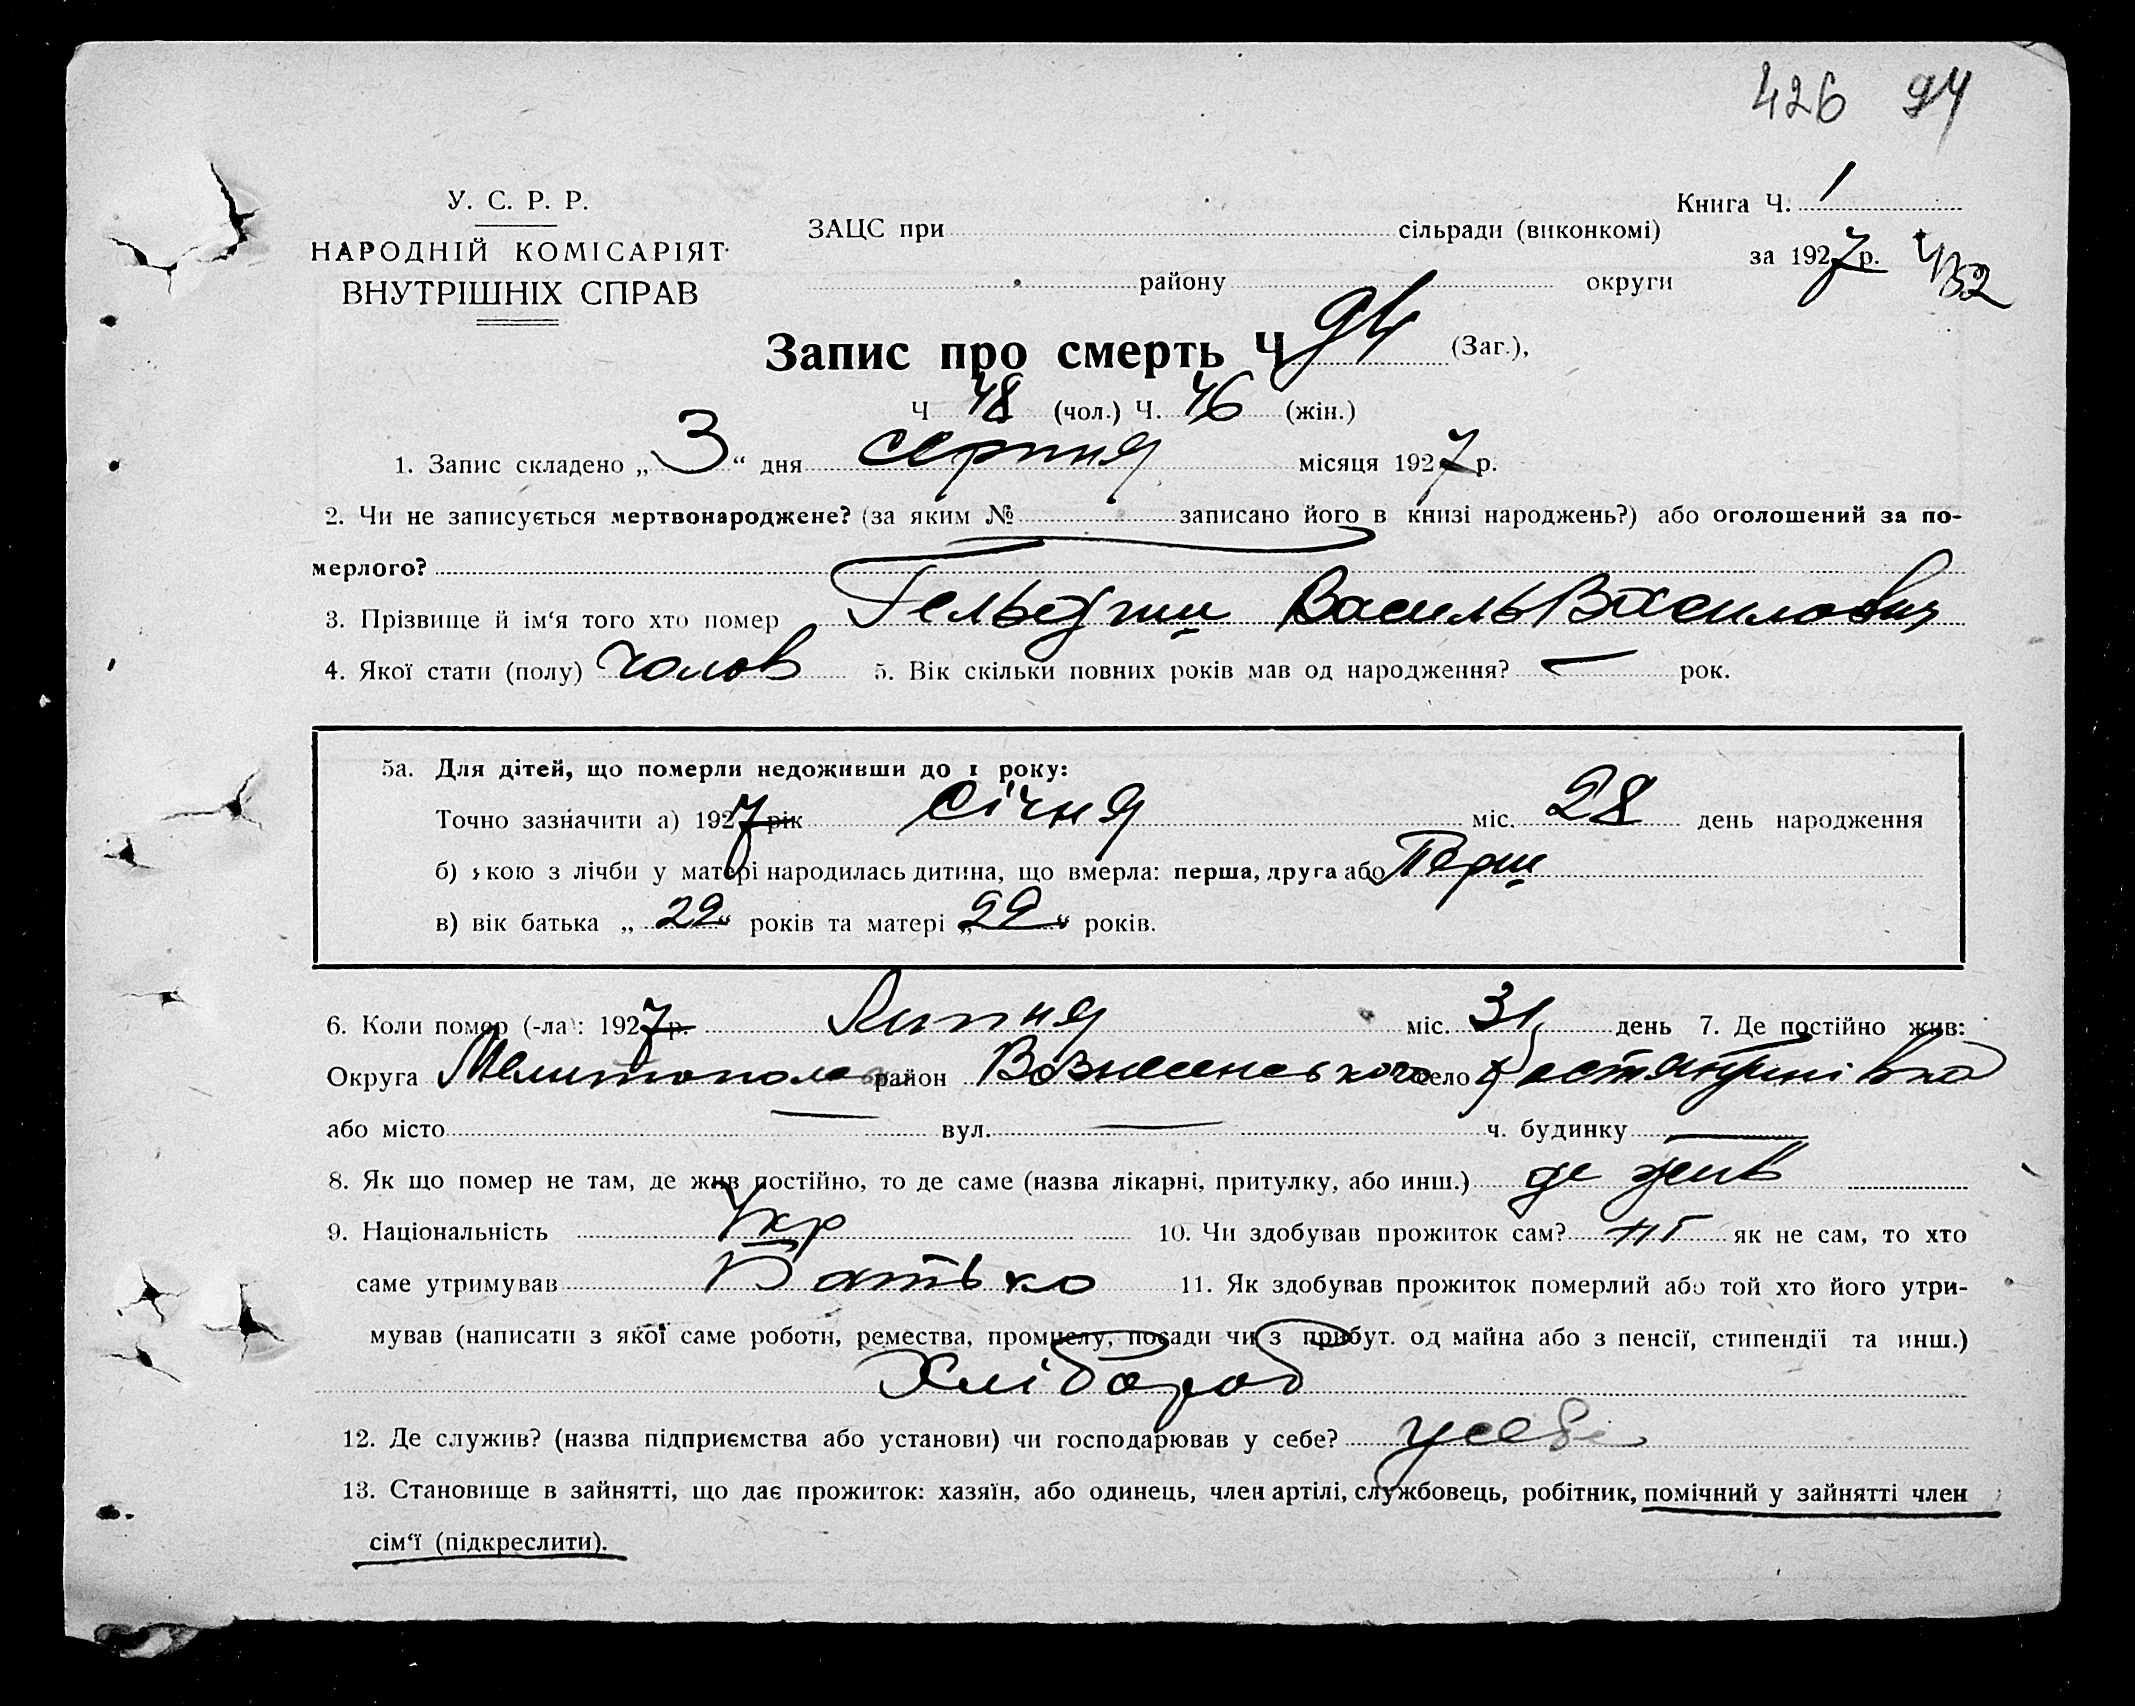 426 94
У. С. Р. Р.
НАРОДНІЙ КОМІСАРІЯТ
ВНУТРІШНІХ СПРАВ
ЗАЦС при сільради (виконкомі)
району округи
Книга Ч. 1
за 1927 р. 432
Запис про смерть Ч 94 (Заг.),
Ч 48 (чол.) Ч. 46 (жін.)
1. Запис складено „ 3 “ дня серпня місяця 1927 р.
2. Чи не записується мертвонароджене? (за яким № записано його в книзі народжень?) або оголошений за по-
мерлого?
3. Прізвище й ім‘я того хто помер Василь Василович
4. Якої стати (полу) чолов 5. Вік скільки повних років мав од народження? — рок.
5а. Для дітей, що померли недоживши до 1 року:
Точно зазначити а) 1927 рік січня міс. 28 день народження
б) якою з лічби у матері народилась дитина, що вмерла: перша, друга або Перш
в) вік батька „ 22 “ років та матері „ 22 “ років.
6. Коли помер (-ла): 1927 р. Липня міс. 31 день 7. Де постійно жив:
Округа Мелитополь район Вознесенського село Костянтинівка
або місто — вул. — ч. будинку —
8. Як що помер не там, де жив постійно, то де саме (назва лікарні, притулку, або инш.) де жив
9. Національність Укр 10. Чи здобував прожиток сам? ні як не сам, то хто
саме утримував Батько 11. Як здобував прожиток померлий або той хто його утри-
мував (написати з якої саме роботи, ремества, промислу, посади чи з прибут. од майна або з пенсії, стипендії та инш.)
Хлібороб
12. Де служив? (назва підприємства або установи) чи господарював у себе? у себе
13. Становище в зайнятті, що дає прожиток: хазяїн, або одинець, член артілі, службовець, робітник, помічний у зайнятті член
сім‘ї (підкреслити).